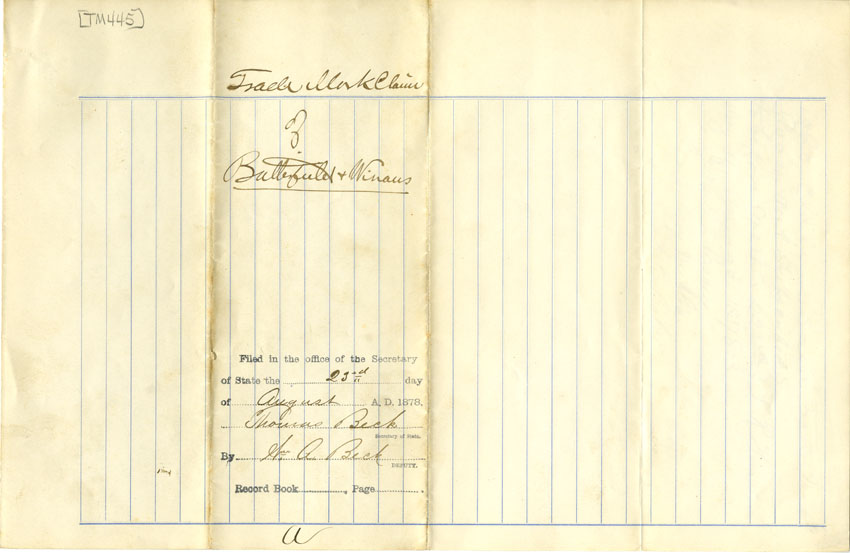 [TM445]
Trade Mark Claim
of
Butterfield & Winans
Filed in the office of the Secretary
of State the 23rd day
of August A. D. 1878.
Thomas Beck
Secretary of State.
By W. A. Beck
DEPUTY.
Record Book , Page .
a